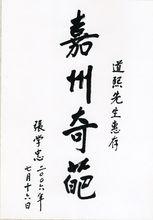 道熙先生惠存
嘉州奇葩
張学忠
二〇〇六年
七月十六日